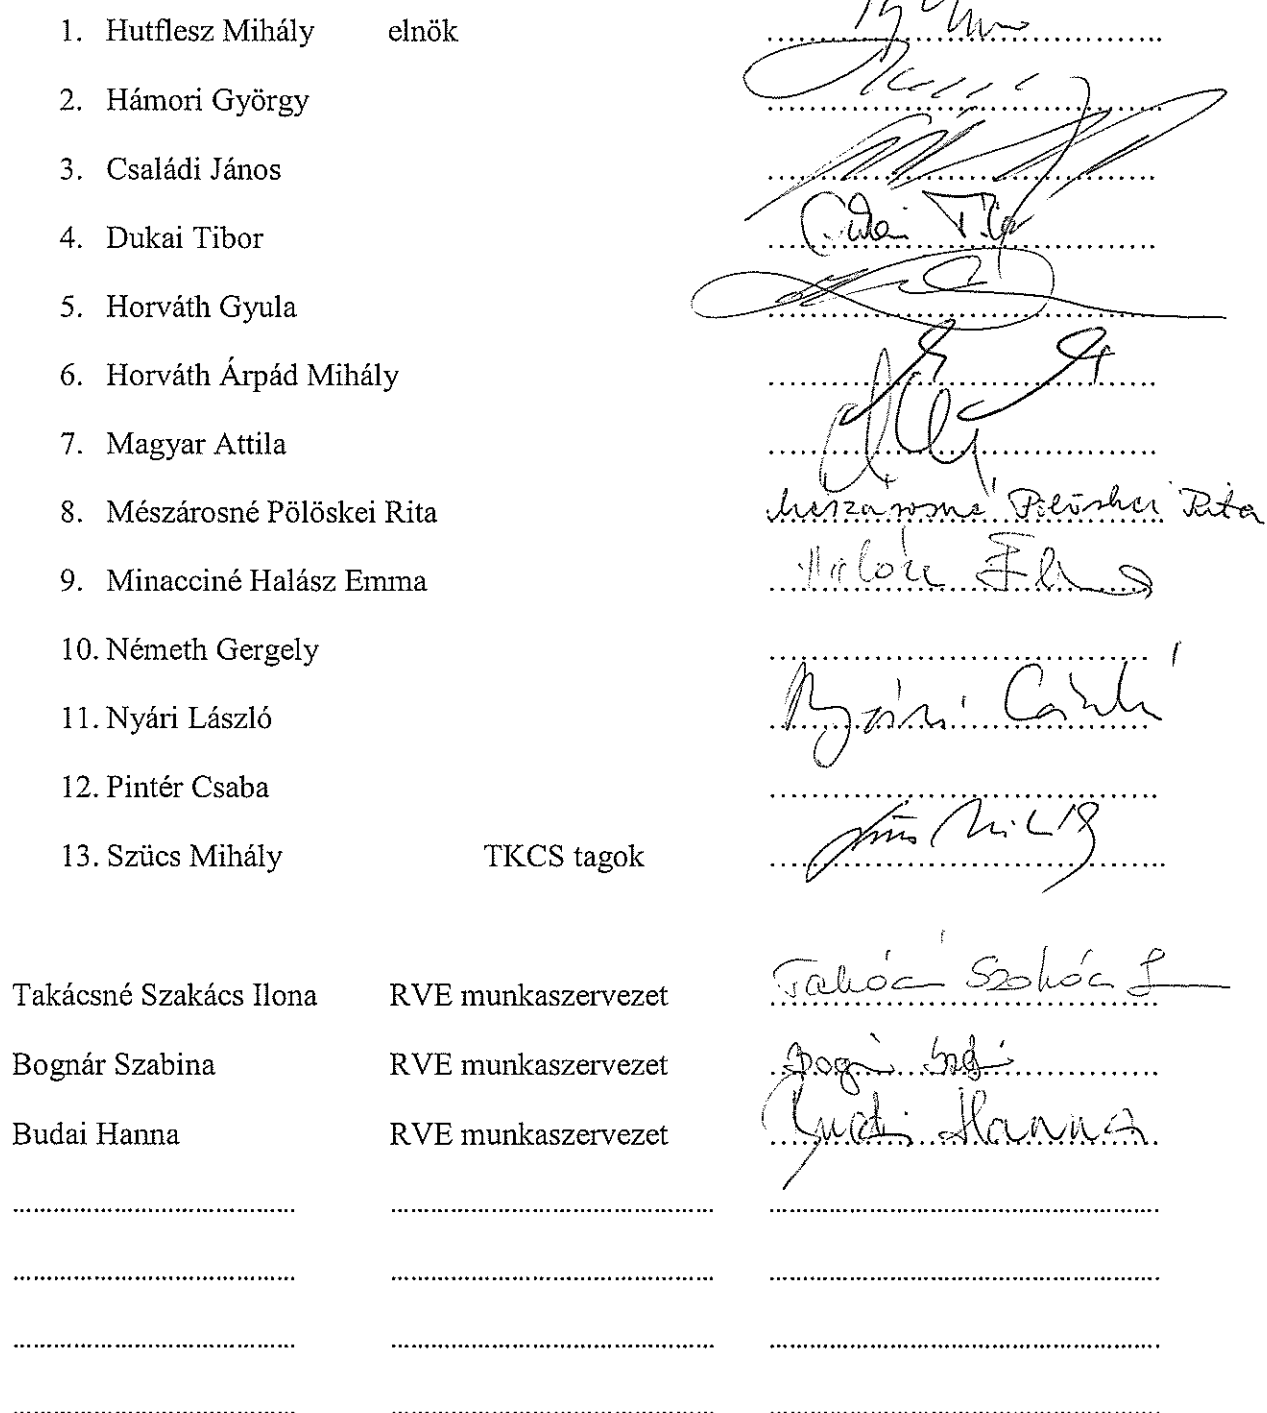 1. Hutflesz Mihály elnök
2. Hámori György
3. Családi János
4. Dukai Tibor
5. Horváth Gyula
6. Horváth Árpád Mihály
7. Magyar Attila
8. Mészárosné Pölöskei Rita Mészárosné Pölöskei Rita
9. Minacciné Halász Emma
10. Németh Gergely
11. Nyári László Nyári László
12. Pintér Csaba
13. Szücs Mihály TKCS tagok
Takácsné Szakács Ilona RVE munkaszervezet
Bognár Szabina RVE munkaszervezet
Budai Hanna RVE munkaszervezet Budai Hanna